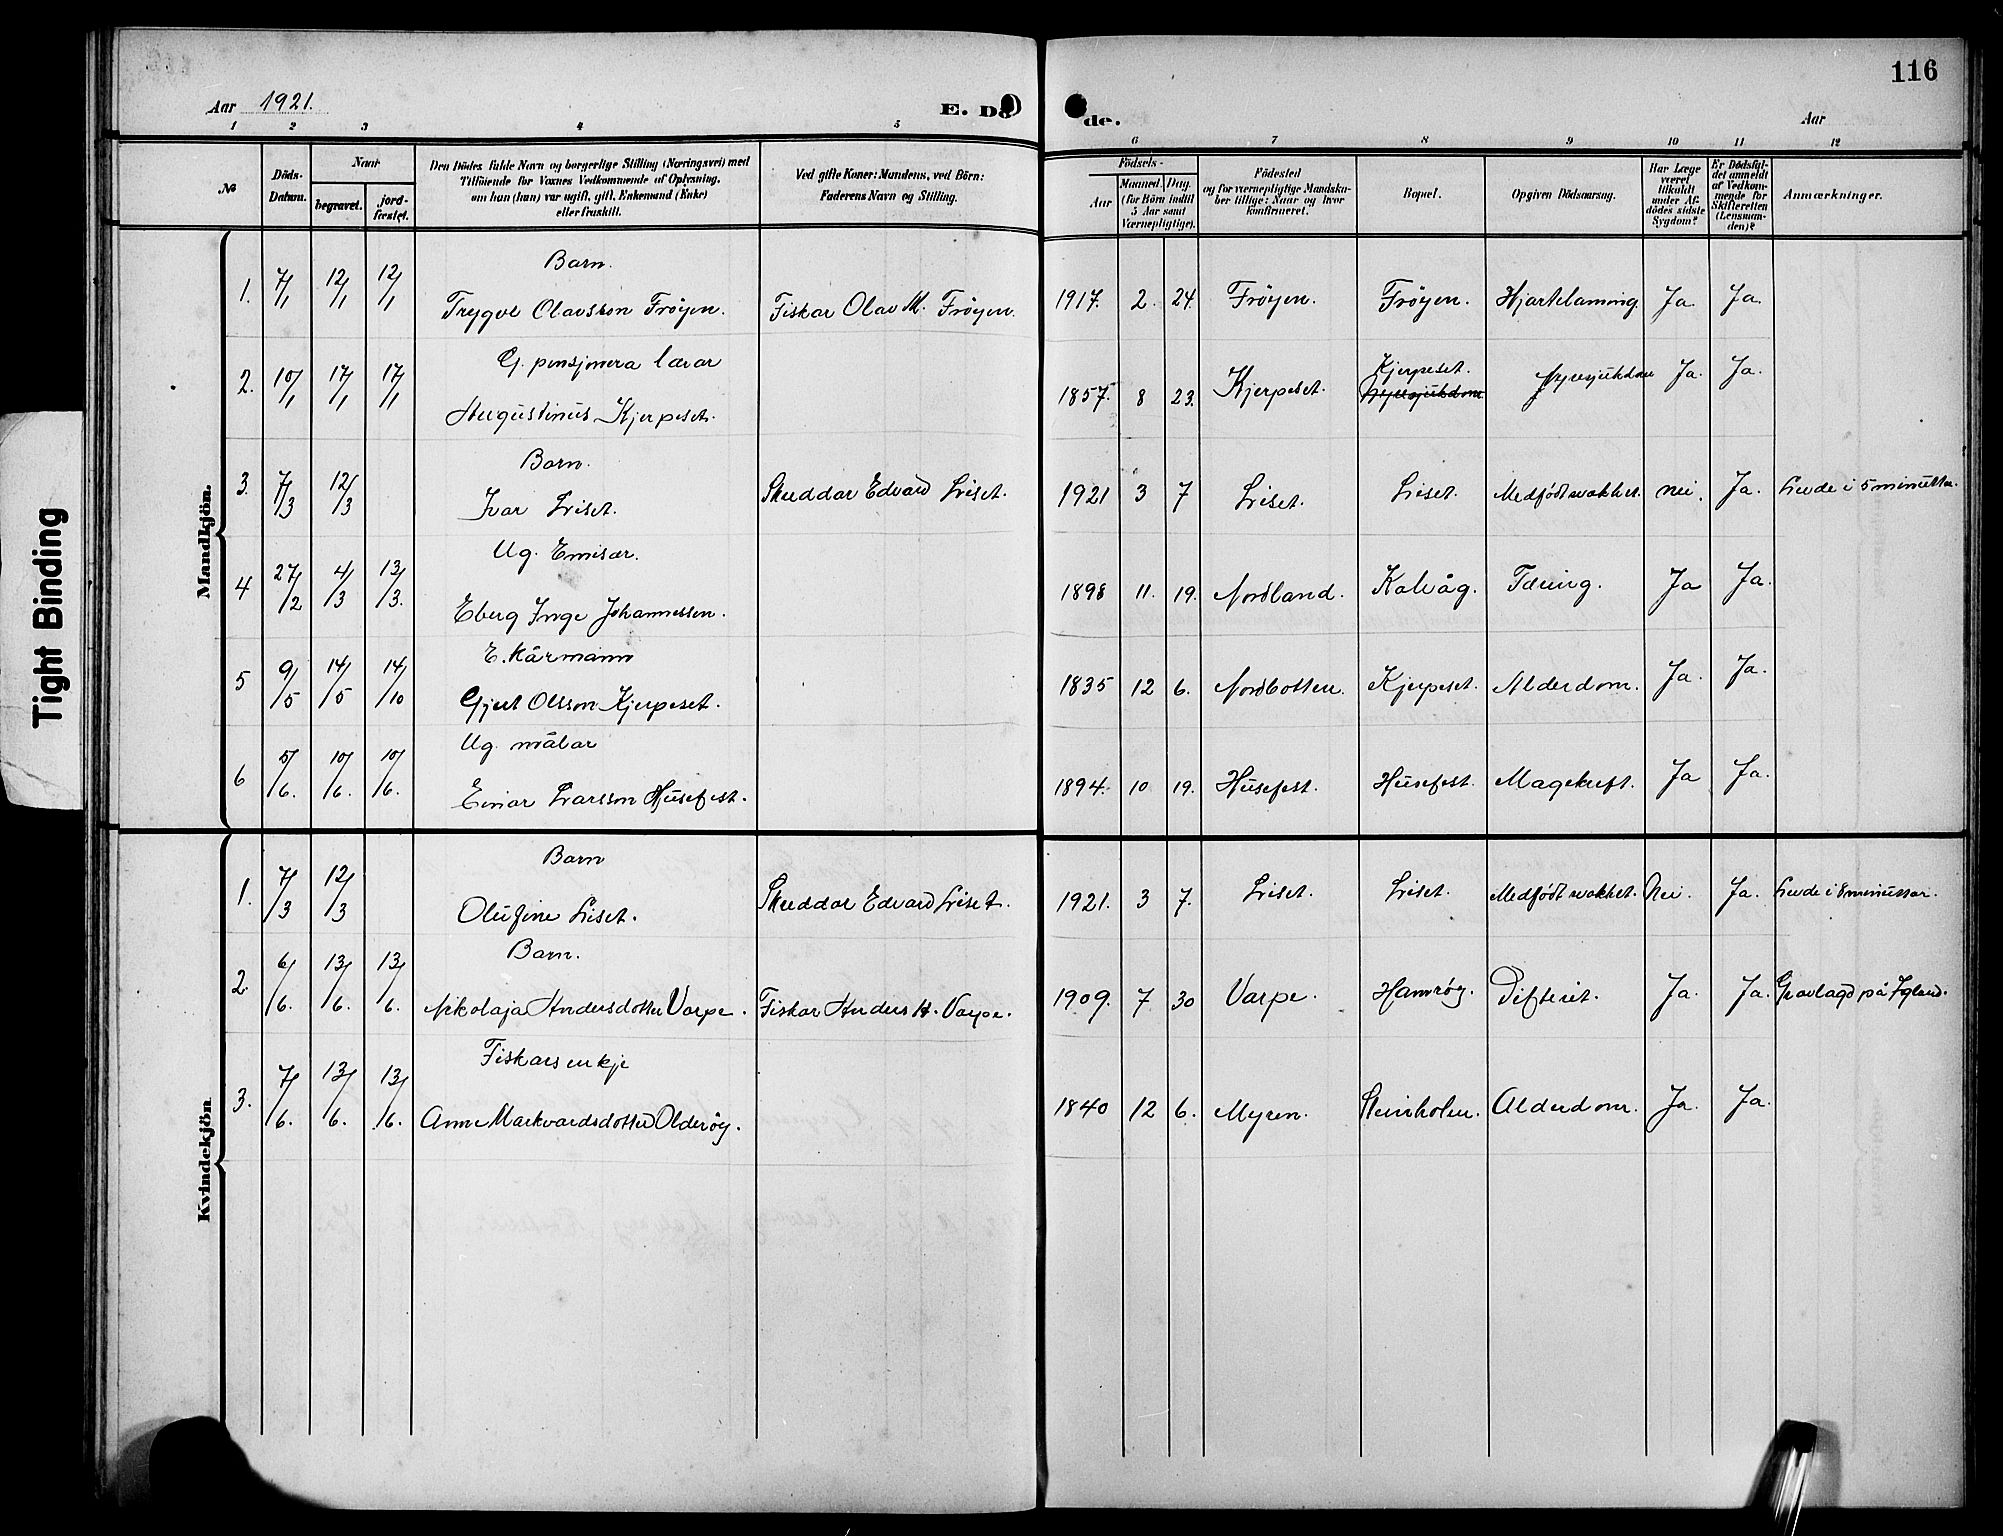 116
Aar 1921.
E. Dø de.
Aar
1 2 3 4 5 6 7 8 9 10 11 12
№
Döds-Datum.
Naar
begravet.
jord-fæstet.
Den Dödes fulde Navn og borgerlige Stilling (Næringsvei) med
Tilföiende for Voxnes Vedkommende af Oplysning,
om han (hun) var ugift, gift, Enkemand (Enke)
eller fraskilt.
Ved gifte Koner: Mandens, ved Börn:
Faderens Navn og Stilling.
Födsels-
Aar
Maaned. Dag.
(for Börn indtil
5 Aar samt
Værnepligtige).
Födested
og for værnepligtige Mandska-
ber tillige: Naar og hvor
konfirmeret.
Bopæl.
Opgiven Dödsaarsag.
Har Læge
været
tilkaldt
under Af-
dödes sidste
Sygdom?
Er Dødsfal-
det anmeldt
af Vedkom-
mende for
Skifteretten
(Lensman-
den)?
Anmærkninger.
Mandkjön.
Barn.
1. 7/1 12/1 12/1 Trygve Olavsson Fröyen. Fiskar Olav M. Fröyen. 1917. 2. 24. Fröyen. Fröyen. Hjartelamning Ja. Ja.
G. pensjonera lærar
2. 10/1 17/1 17/1 Augustinus Kjerpeset. 1857. 8 23. Kjerpeset. Kjerpeset. Nyresjukdom Nyresjukdom Ja. Ja.
Barn.
3. 7/3 12/3 Ivar Liset. Skreddar Edvard Liset. 1921 3 7 Liset. Liset. Medfödt svakhet. nei. Ja. Livde i 5 minuttar.
Ug. Emisær.
4 27/2 4/3 13/3. Eberg Inge Johannessen. 1898 11. 19. Nordland. Kalvåg. Tæring. Ja Ja.
E. kårmann
5 9/5 14/5 14/10 Gjert Olsson Kjerpeset. 1835 12 6. Nordbotten. Kjerpeset. Alderdom. Ja. Ja.
Ug. målar
6 5/6. 10/6. 10/6. Einar Larsson Husefest. 1894. 10 19. Husefest. Husefest. Magekreft. Ja Ja.
Kvindekjön
Barn
1. 7/3 12/3 Olufine Liset. Skreddar Edvard Liset. 1921. 3 7. Liset. Liset. Medfödt svakhet. Nei. Ja. Livde i 8 minuttar.
Barn.
2. 6/6. 13/6. 13/6. Nikolaja Andersdotter Varpe. Fiskar Anders H. Varpe. 1909. 7 30 Varpe. Hamröy. Difterit. Ja. Ja. Gravlagd på Igland.
Fiskarsenkje
3. 7/6. 13/6. 13/6. Anne Markvardsdotter Olderöy. 1840 12 6. Myren. Steinholen. Alderdom. Ja. Ja.
Tight Binding